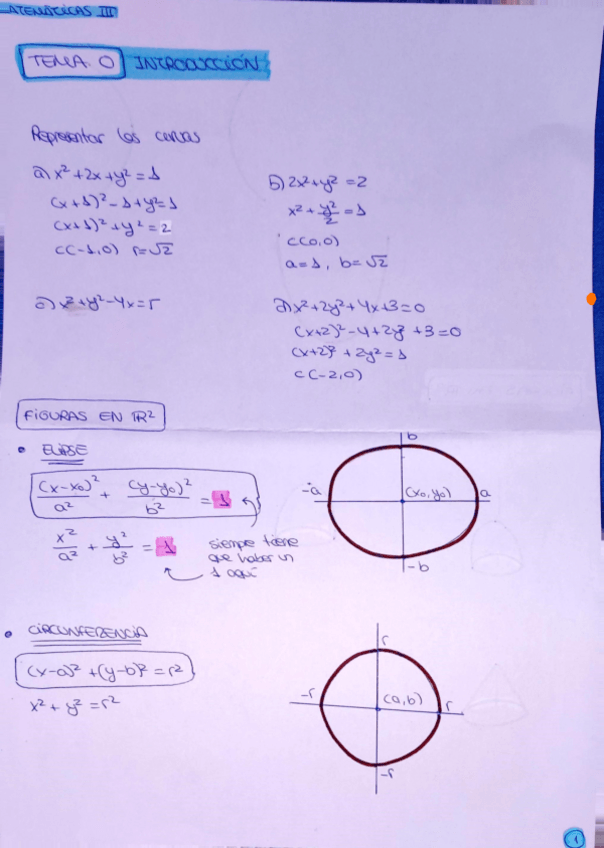 ATEMÁTICAS III
TEMA 0 INTRODUCCIÓN
Representar las curvas
a) x² + 2x + y² = 1
(x+1)² - 1 + y² = 1
(x+1)² + y² = 2
C(-1,0) r=√2
b) 2x² + y² = 2
x² + y²/2 = 1
C(0,0)
a=1, b=√2
c) x² + y² - 4x = 5
d) x² + 2y² + 4x + 3 = 0
(x+2)² - 4 + 2y² + 3 = 0
(x+2)² + 2y² = 1
C(-2,0)
FIGURAS EN IR²
• ELIPSE
(x-x₀)²/a² + (y-y₀)²/b² = 1
x²/a² + y²/b² = 1
siempre tiene
que haber un
1 aquí
b
-a (x₀,y₀) a
-b
• CIRCUNFERENCIA
(x-a)² + (y-b)² = r²
x² + y² = r²
r
-r (a,b) r
-r
1